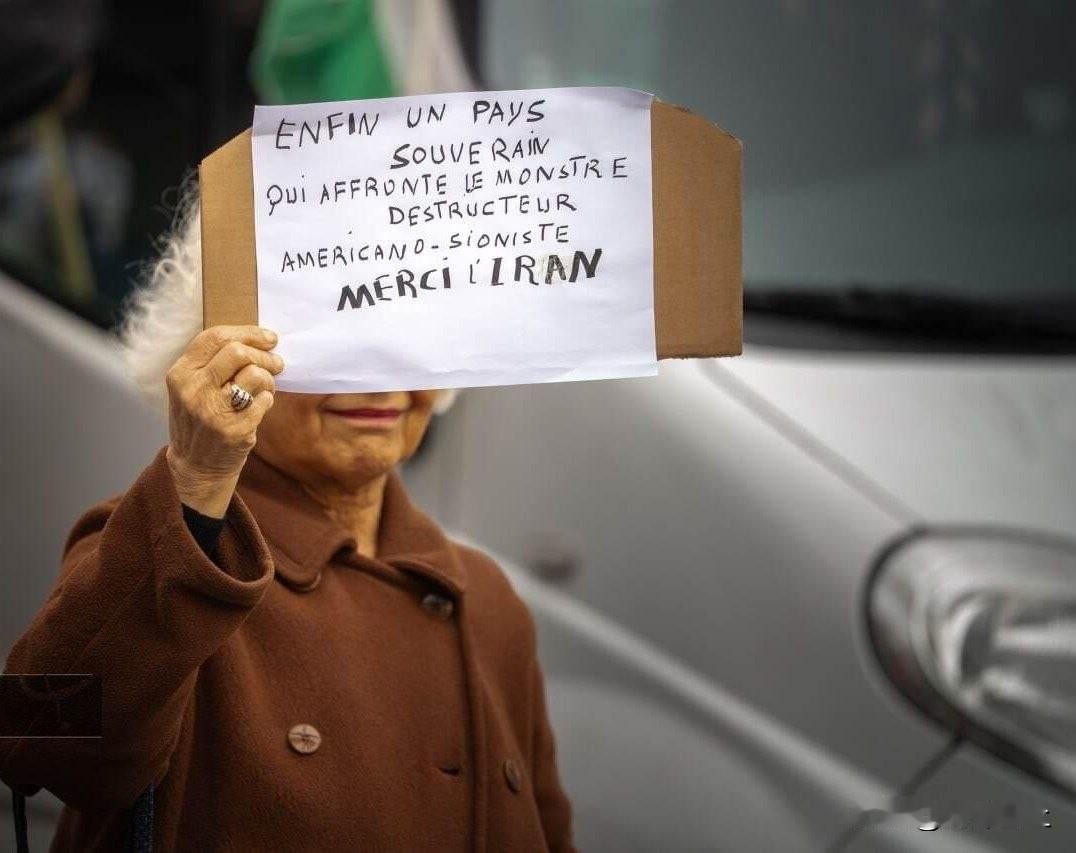 ENFIN UN PAYS
SOUVERAIN
QUI AFFRONTE LE MONSTRE
DESTRUCTEUR
AMERICANO-SIONISTE
MERCI l'IRAN